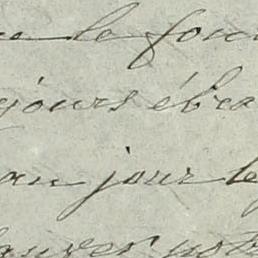 le fou
jours ébra
au jour le
sauver notr